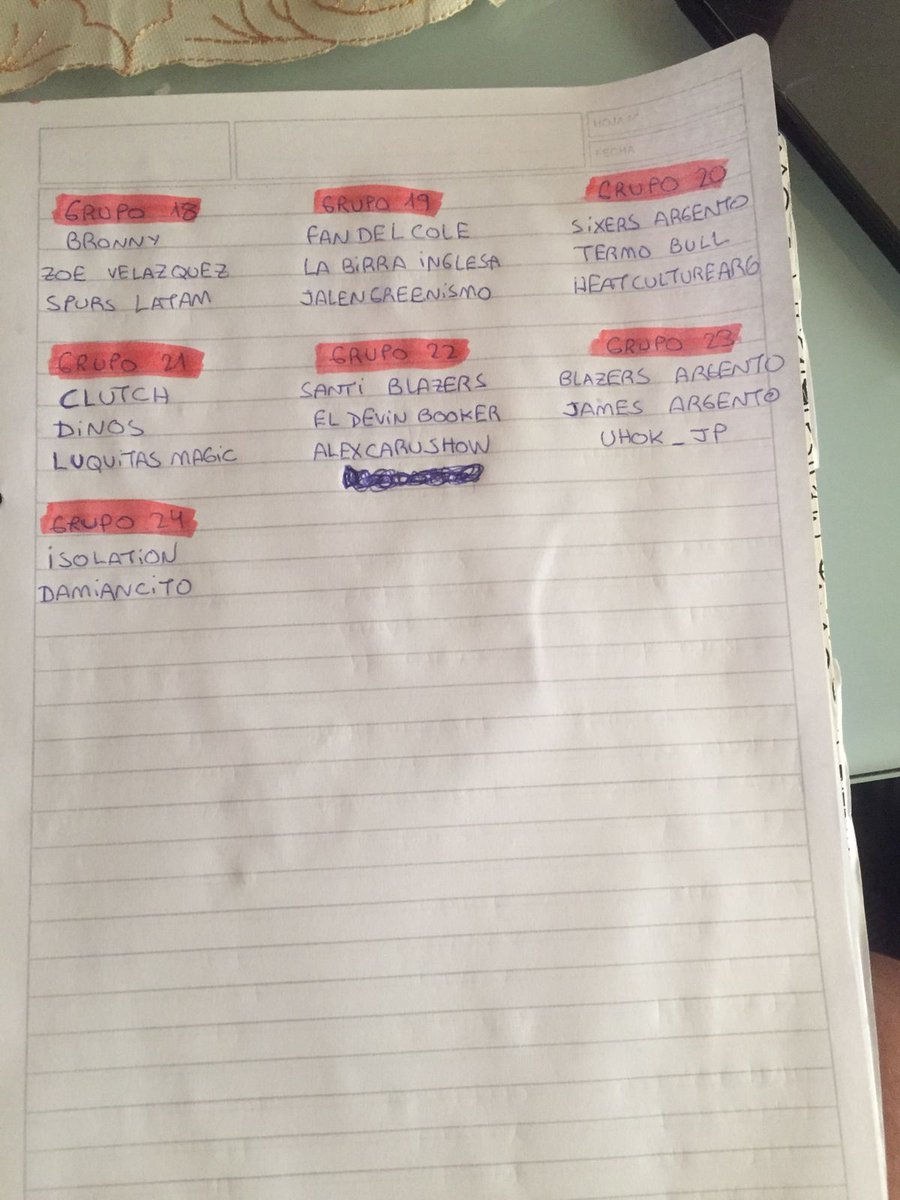 HOJA Nº
FECHA
GRUPO 18
BRONNY
ZOE VELAZQUEZ
SPURS LATAM
GRUPO 19
FANDELCOLE
LA BIRRA INGLESA
JALENGREENISMO
GRUPO 20
SIXERS ARGENTO
TERMO BULL
HEATCULTUREARG
GRUPO 21
CLUTCH
DINOS
LUQUITAS MAGIC
GRUPO 22
SANTI BLAZERS
EL DEVIN BOOKER
ALEXCARUSHOW
GRUPO 23
BLAZERS ARGENTO
JAMES ARGENTO
UHOK_JP
GRUPO 24
ISOLATION
DAMIANCITO